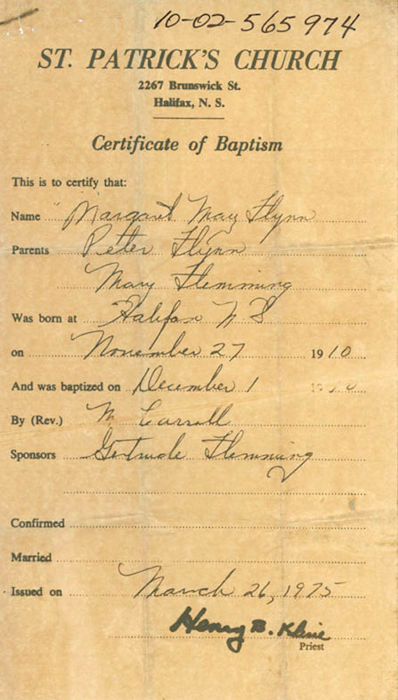 10-02-565974
ST. PATRICK'S CHURCH
2267 Brunswick St.
Halifax, N. S.
Certificate of Baptism
This is to certify that:
Name Margaret May Flynn
Parents Peter Flynn
Mary Flemming
Was born at Halifax N S
on November 27 1910
And was baptized on December 1 1910
By (Rev.) W Carroll
Sponsors Gertrude Flemming
Confirmed
Married
Issued on March 26, 1975
Henry B. Kline
Priest